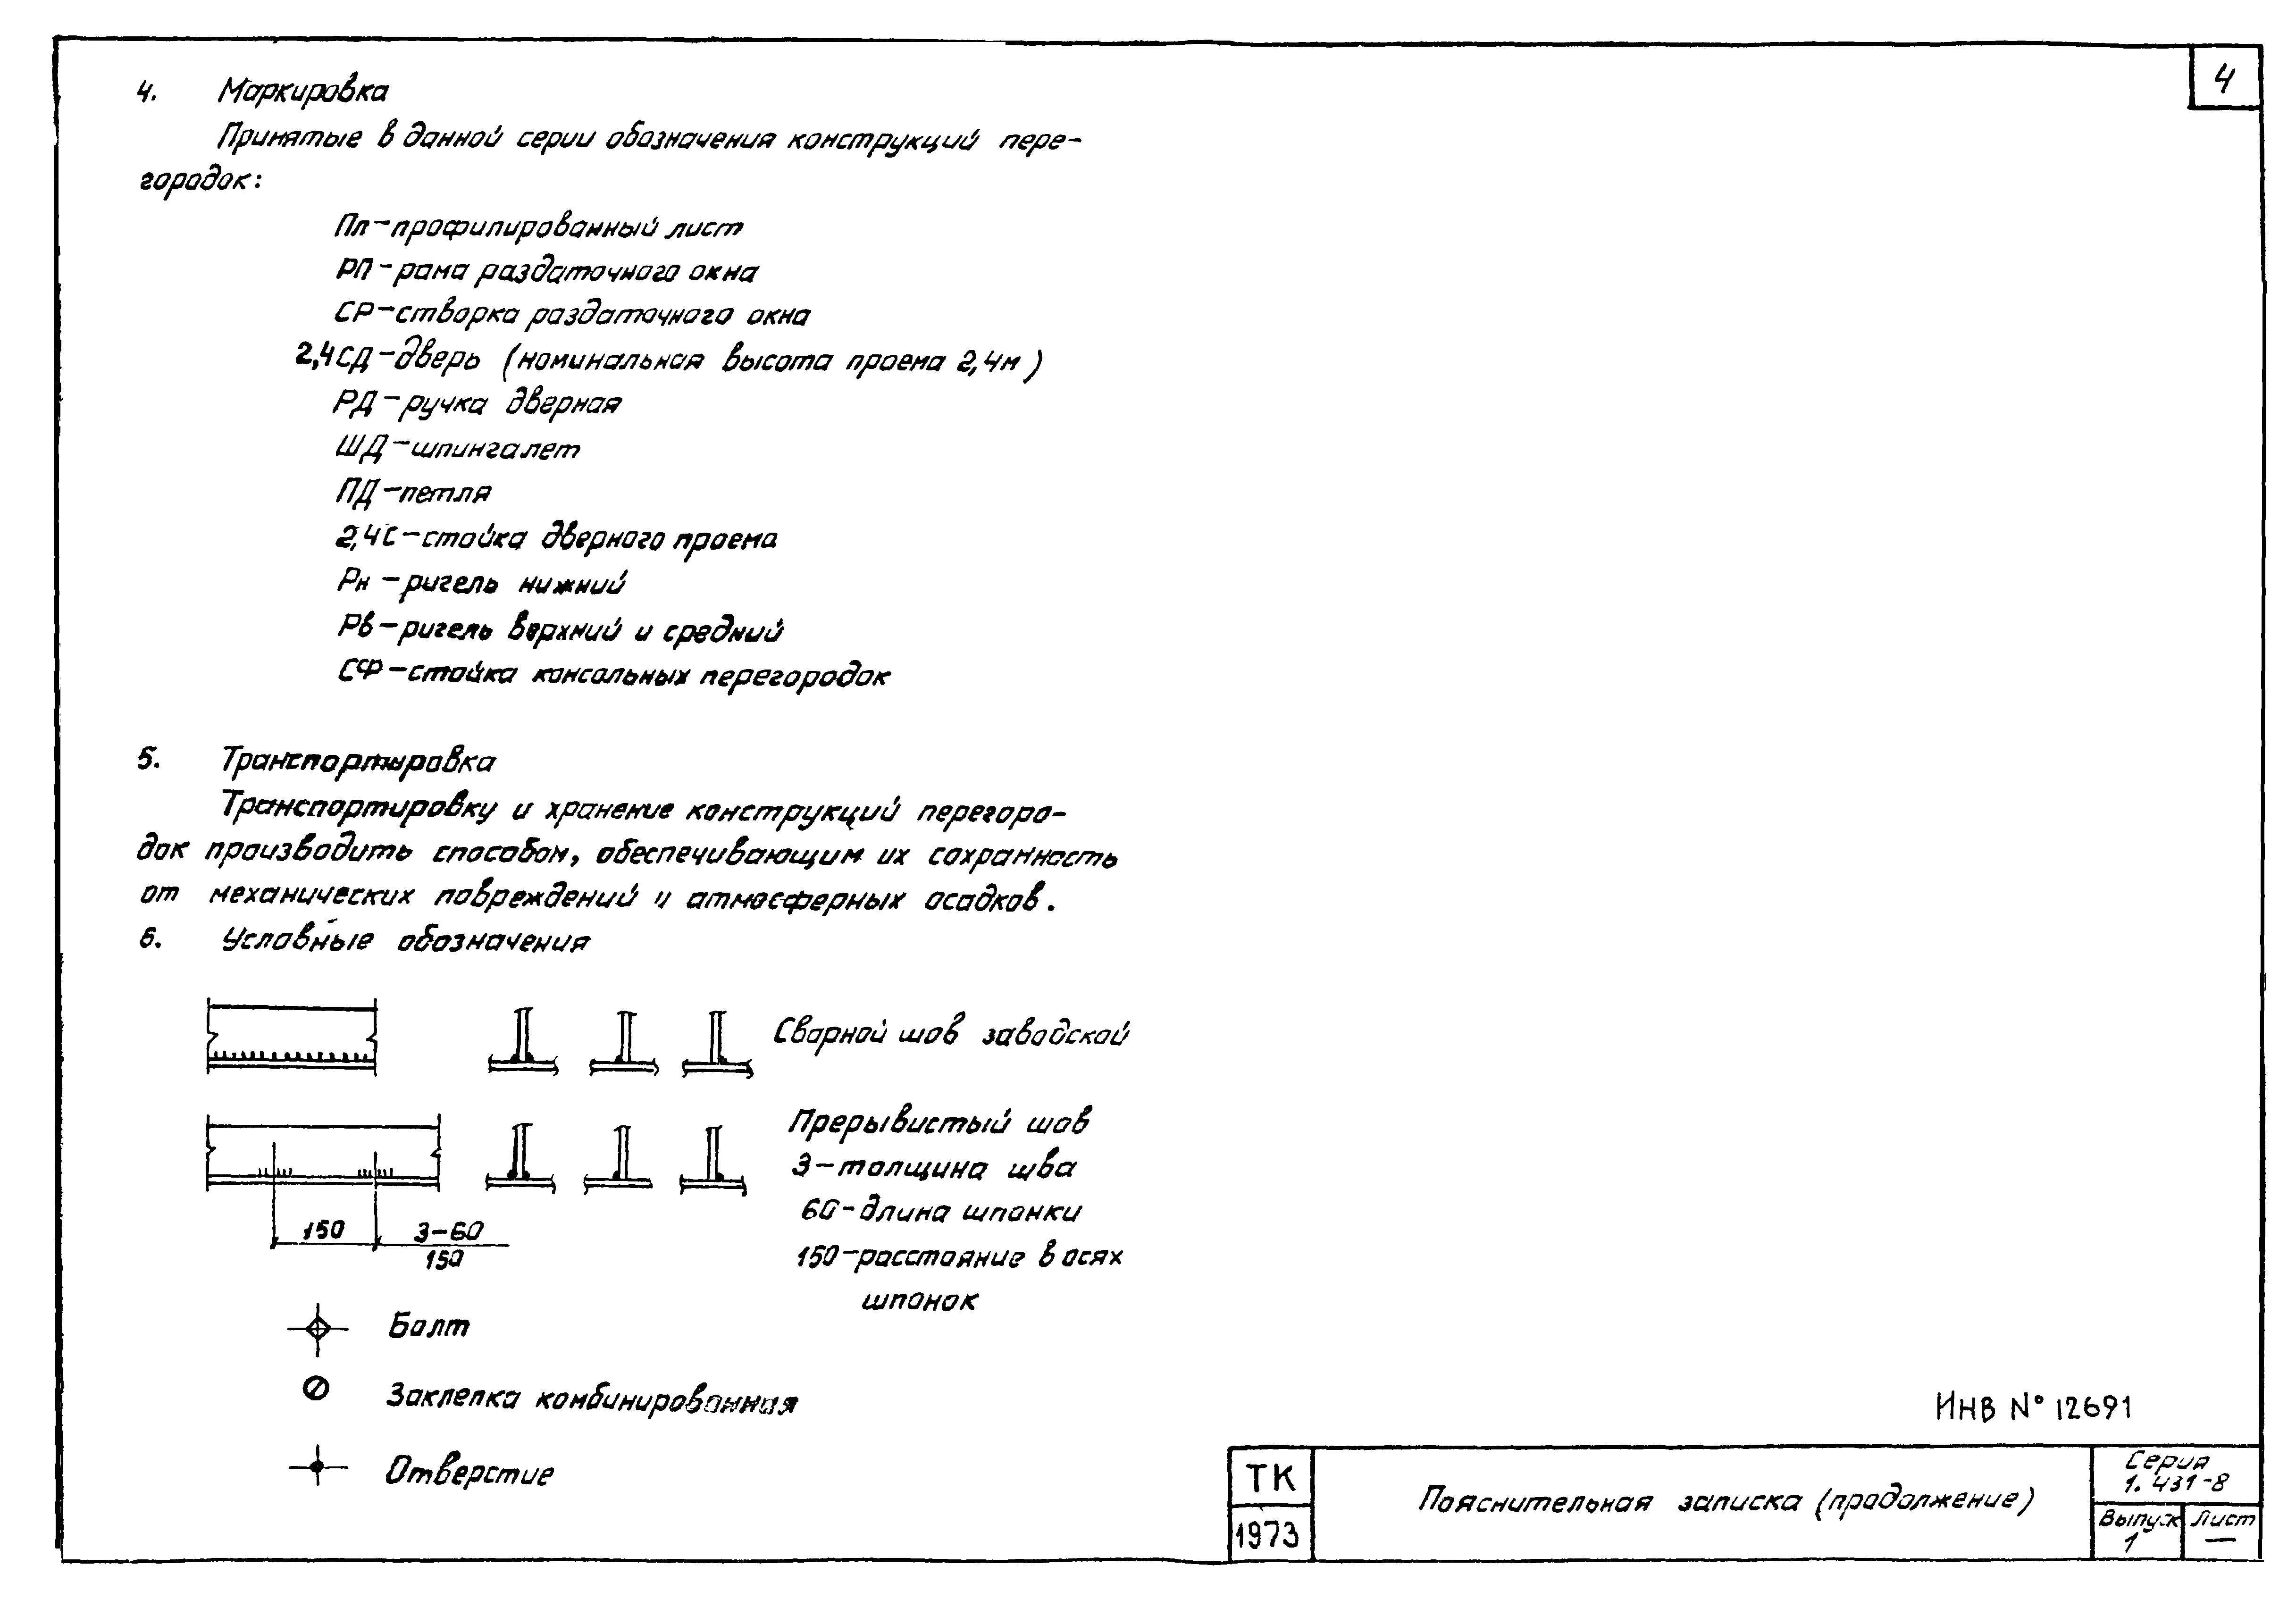 4
4. Маркировка
Принятые в данной серии обозначения конструкций пере-
городок:
Пл-профилированный лист
РП-рама раздаточного окна
СР-створка раздаточного окна
2,4СД-дверь (номинальная высота проема 2,4м)
РД-ручка дверная
ШД-шпингалет
ПД-петля
2,4С-стойка дверного проема
Рн-ригель нижний
Рв-ригель верхний и средний
СФ-стойка консольных перегородок
5. Транспортировка
Транспортировку и хранение конструкций перегоро-
док производить способом, обеспечивающим их сохранность
от механических повреждений и атмосферных осадков.
6. Условные обозначения
Сварной шов заводской
Прерывистый шов
3-толщина шва
60-длина шпонки
150-расстояние в осях
шпонок
150
3-60
150
Болт
Заклепка комбинированная
Отверстие
ИНВ № 12691
ТК
1973
Пояснительная записка (продолжение)
Серия
1.431-8
Выпуск
1
Лист
—